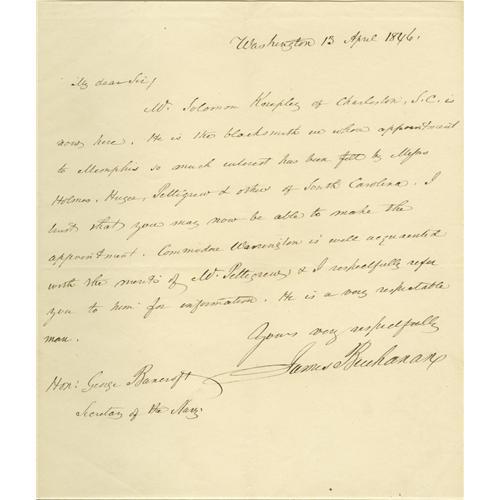 Washington 13 April 1846.
My dear Sir/
Mr. Solomon of Charleston, S.C. is
now here. He is the blacksmith in whose appointment
to Memphis so much interest has been felt by Messrs
Holmes, Huger, Pettigrew & others of South Carolina. I
trust that you may now be able to make the
appointment. Commodore Warrington is well acquainted
with the merits of Mr. Pettigrew & I respectfully refer
you to him for information. He is a very respectable
man.
Yours very respectfully
James Buchanan
Hon: George Bancroft
Secretary of the Navy